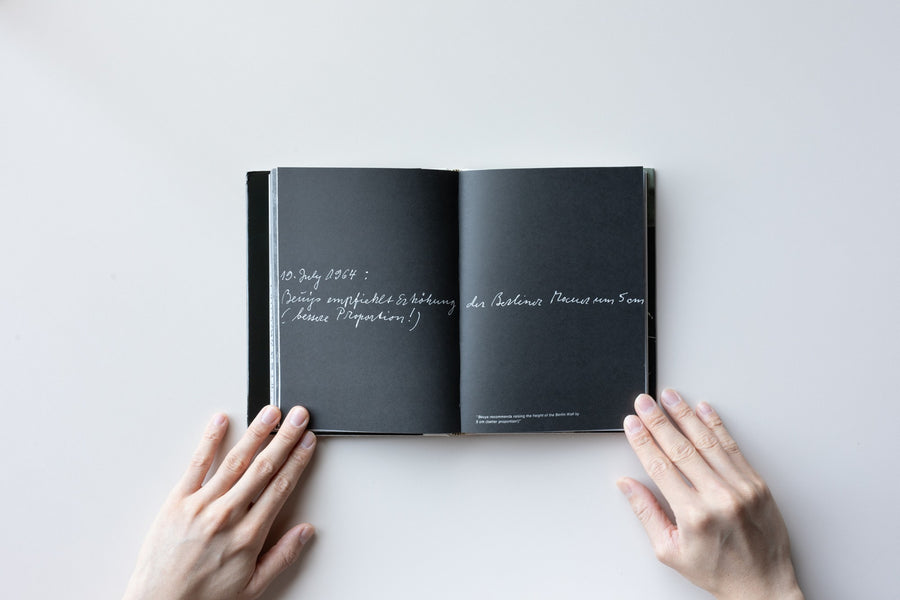 19. July 1964 :
Beuys empfiehlt Erhöhung der Berliner Mauer um 5 cm
( bessere Proportion! )
"Beuys recommends raising the height of the Berlin Wall by
5 cm (better proportion!)"